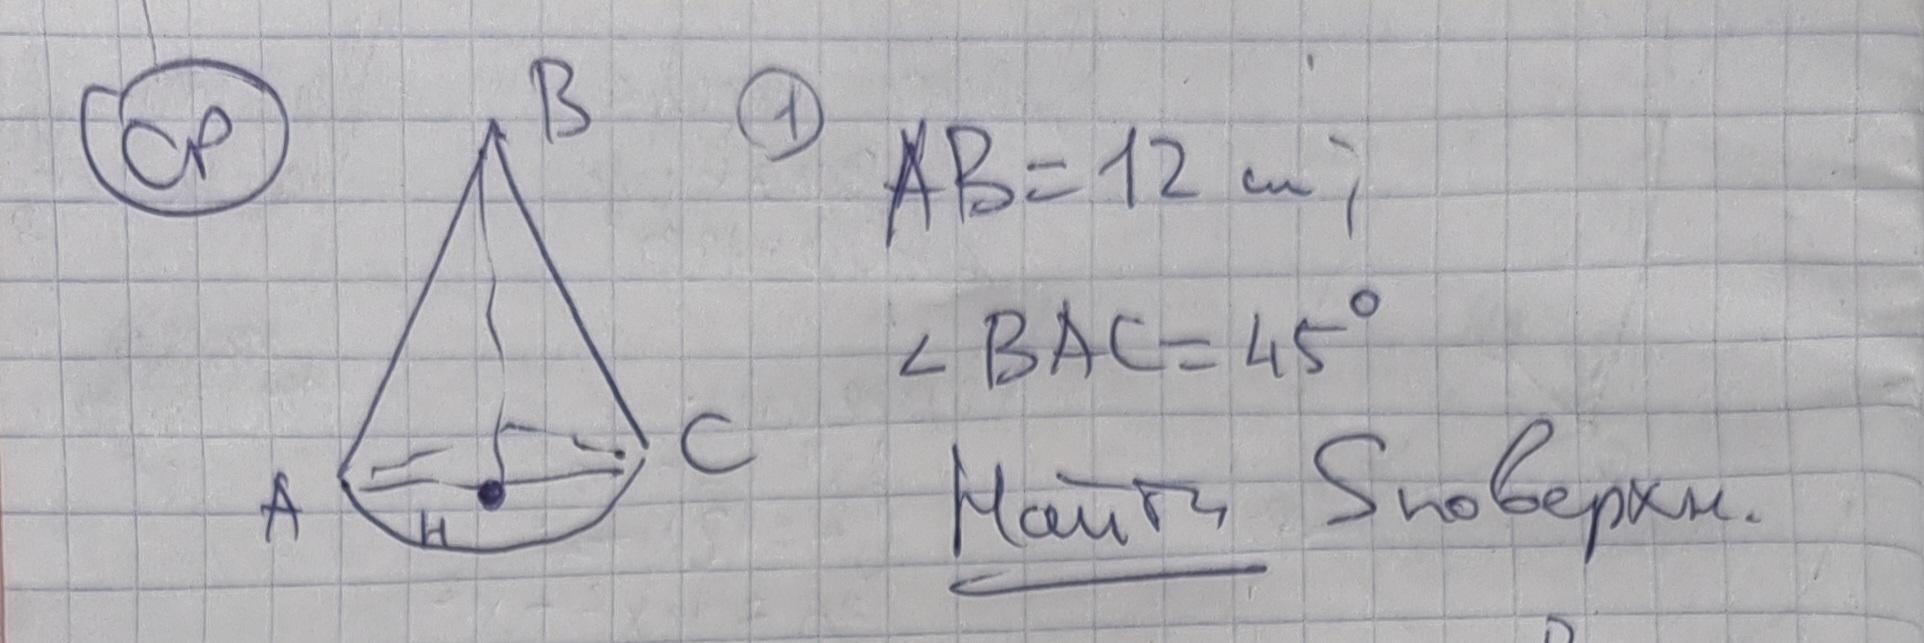 СР
B
① AB = 12 см;
∠BAC = 45°
A
H
C
Найти Sповерхн.